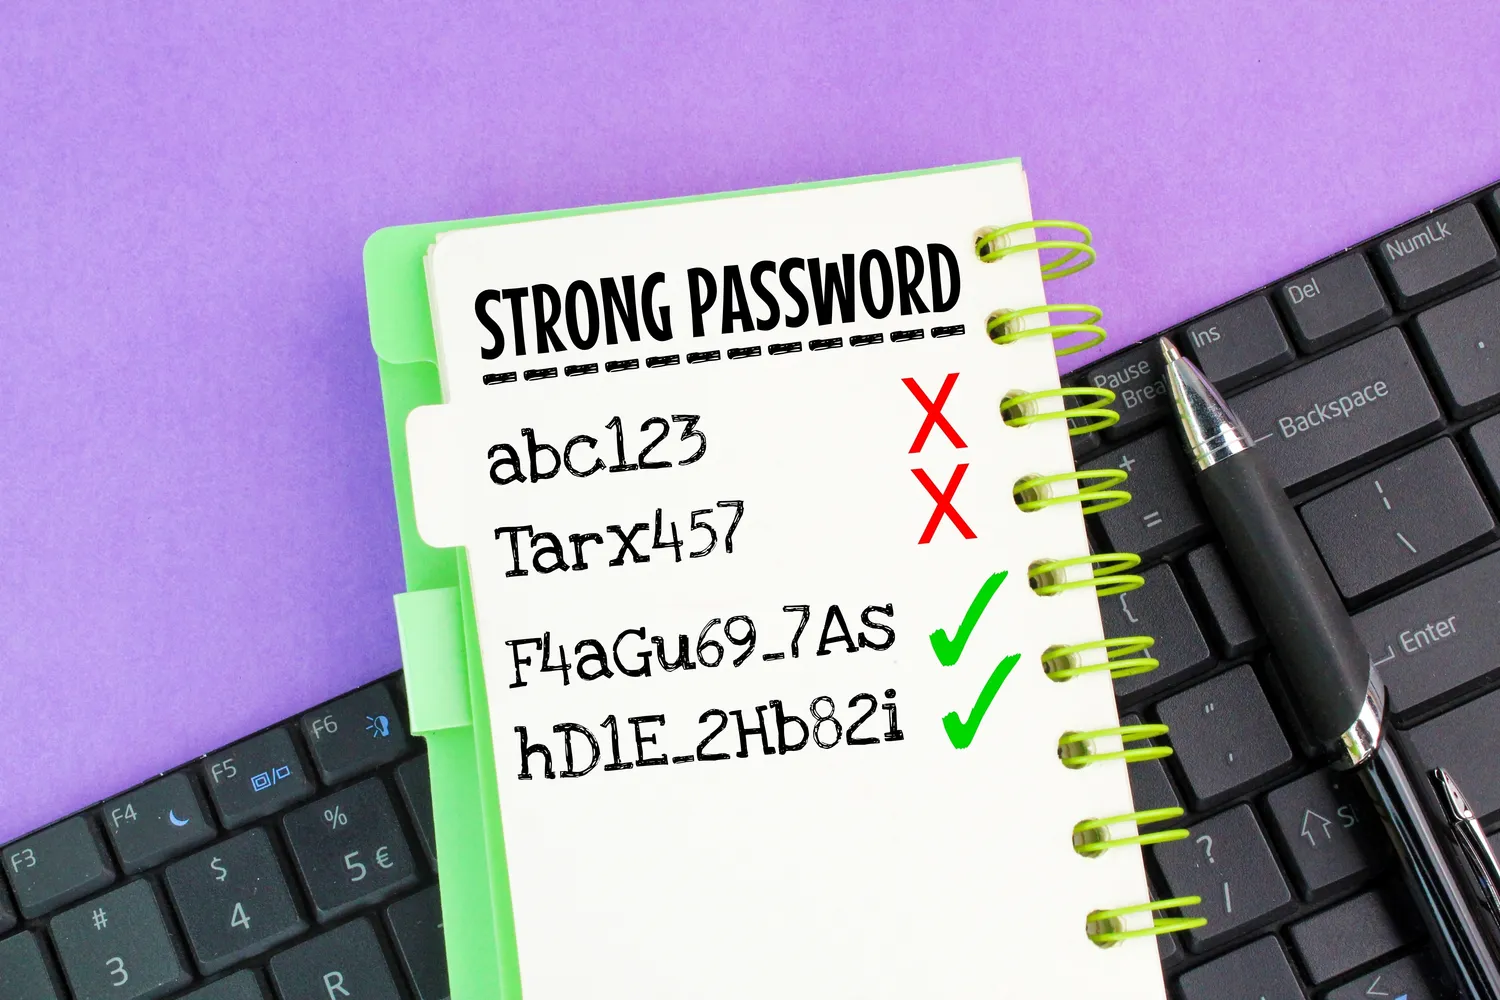 STRONG PASSWORD
abc123 X
Tarx457 X
F4aGu69_7AS ✓
hD1E_2Hb82i ✓
NumLk
Del
Ins
Pause
Brea
Backspace
+
=
|
\
{
Enter
"
?
/
<
F6
F5
F4
F3
%
5 €
$
4
#
3
R